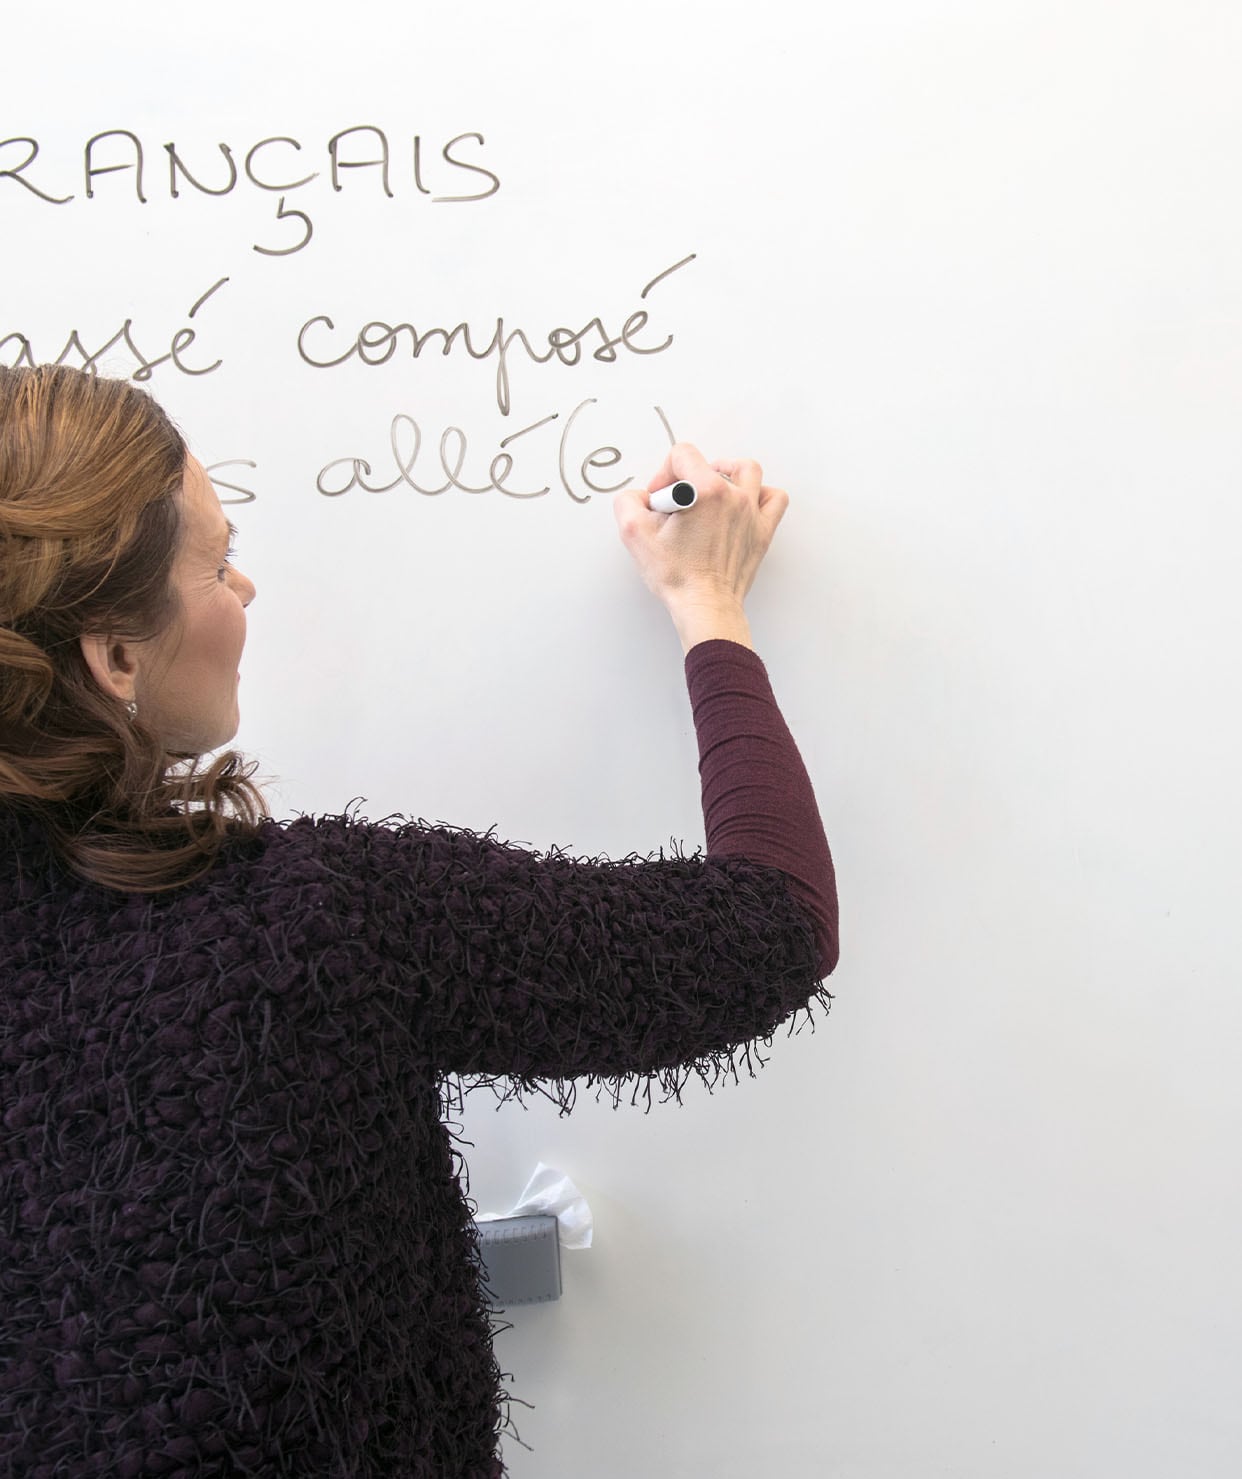 RANÇAIS
assé composé
s allé(e)